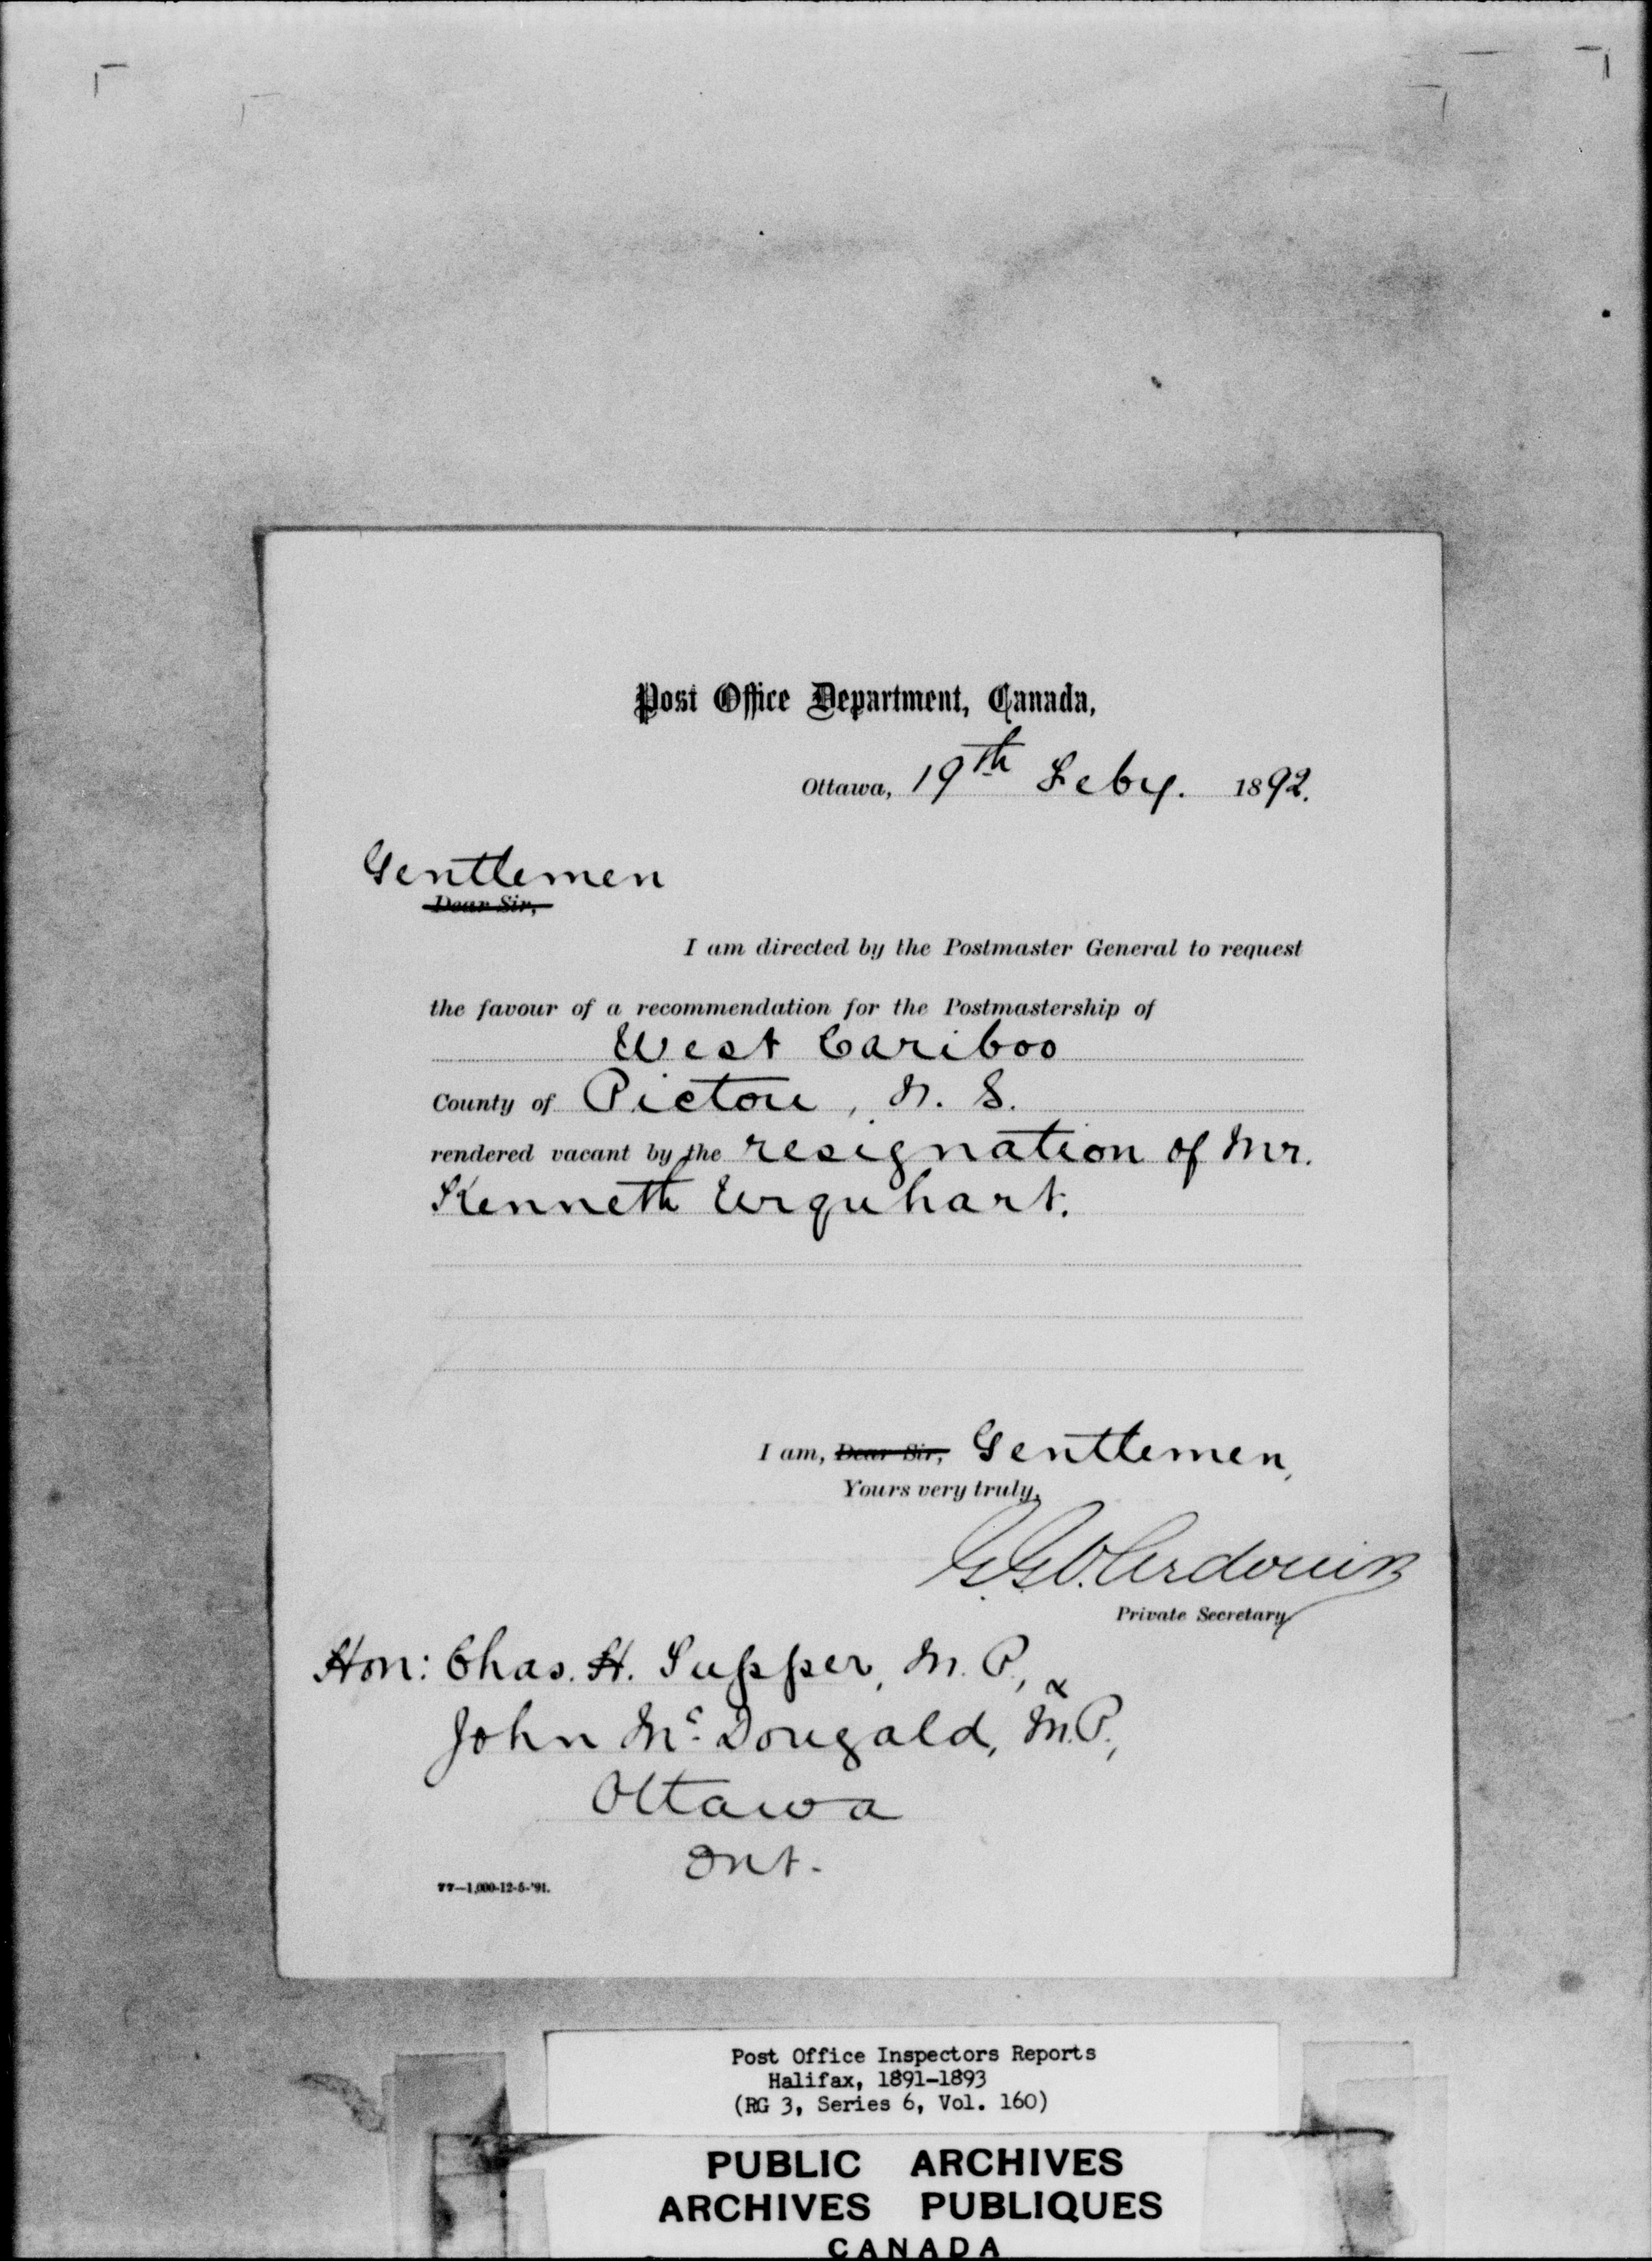 Post Office Department, Canada,
Ottawa, 19th Feby. 1892.
Gentlemen
Dear Sir,
I am directed by the Postmaster General to request
the favour of a recommendation for the Postmastership of
West Cariboo
County of Pictou, N. S.
rendered vacant by the resignation of Mr.
Kenneth Urquhart.
I am, Dear Sir, Gentlemen,
Yours very truly,
Private Secretary
Hon: Chas. H. Tupper, M. P., &
John Mc Dougald, M.P.,
Ottawa
Ont.
77—1,000-12-5-'91.
Post Office Inspectors Reports
Halifax, 1891-1893
(RG 3, Series 6, Vol. 160)
PUBLIC ARCHIVES
ARCHIVES PUBLIQUES
CANADA